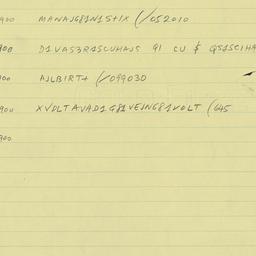 900 MANAJG81N1S+IX (/052010
900 D1VAS3R1SCUHAJS 91 CU $ GS1SC1HA
900 AJLBIRT+ (/099030
900 XVDLTAVAD1G81VEJNG81VOLT (645
900